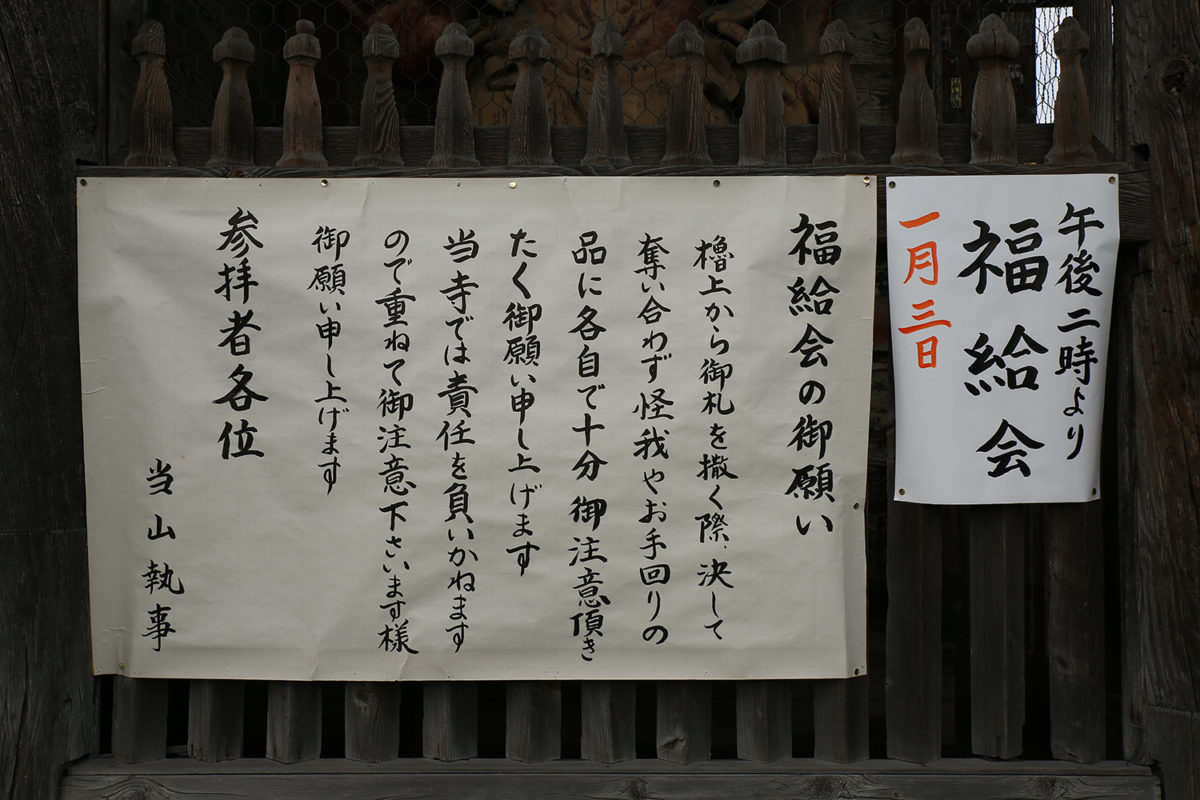 午後二時より
福給会
一月三日
福給会の御願い
櫓上から御札を撒く際、決して
奪い合わず怪我やお手回りの
品に各自で十分御注意頂き
たく御願い申し上げます
当寺では責任を負いかねます
ので重ねて御注意下さいます様
御願い申し上げます
参拝者各位
当山執事